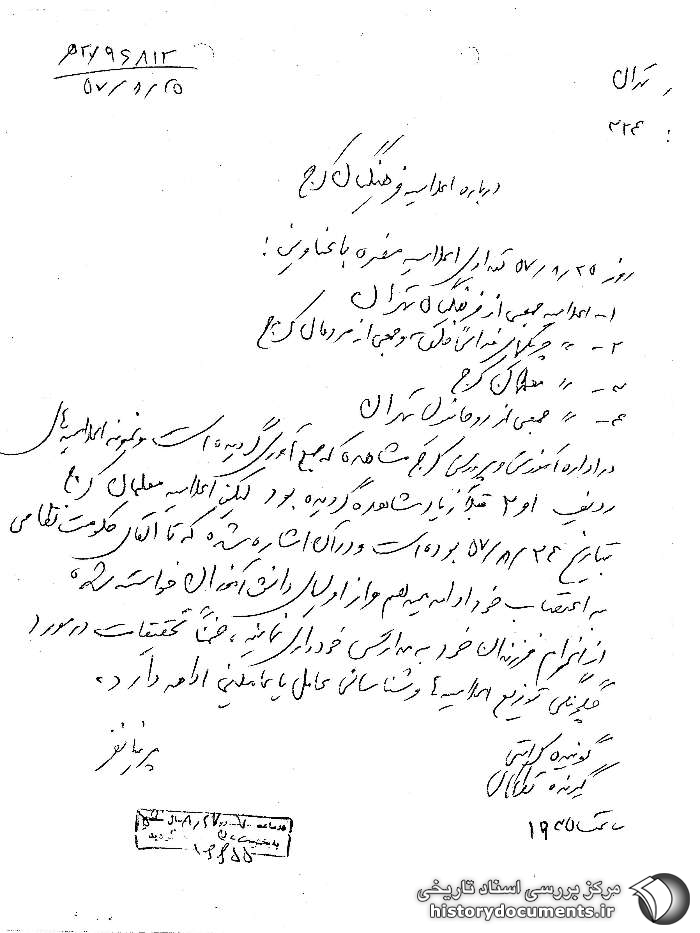 تهران
۳۲۴
۵۷/۸/۲۵
درباره اعلامیه فرهنگیان کرج
روز ۵۷/۸/۲۵ تعدادی اعلامیه مضره با عناوین:
۱- اعلامیه جمعی از فرهنگیان تهران
۲- 〃 چریکهای فدائی خلق و جمعی از مردمان کرج
۳- 〃 معلمان کرج
۴- 〃 جمعی از روحانیون تهران
در اداره آموزش و پرورش کرج مشاهده که جمع آوری گردیده است و نمونه اعلامیه های
ردیف ۱ و ۲ قبلاً زیاد مشاهده گردیده بود لیکن اعلامیه معلمان کرج
بتاریخ ۵۷/۸/۲۴ بوده است و در آن اشاره شده که تا الغای حکومت نظامی
به اعتصاب خود ادامه میدهیم و از اولیای دانش آموزان خواسته شده
از اعزام فرزندان خود به مدارس خودداری نمایند، ضمناً تحقیقات در مورد
چگونگی توزیع اعلامیه ها و شناسائی عامل یا عاملین ادامه دارد.
گوینده
گیرنده
ساعت ۱۹۳۵
مرکز بررسی اسناد تاریخی
historydocuments.ir